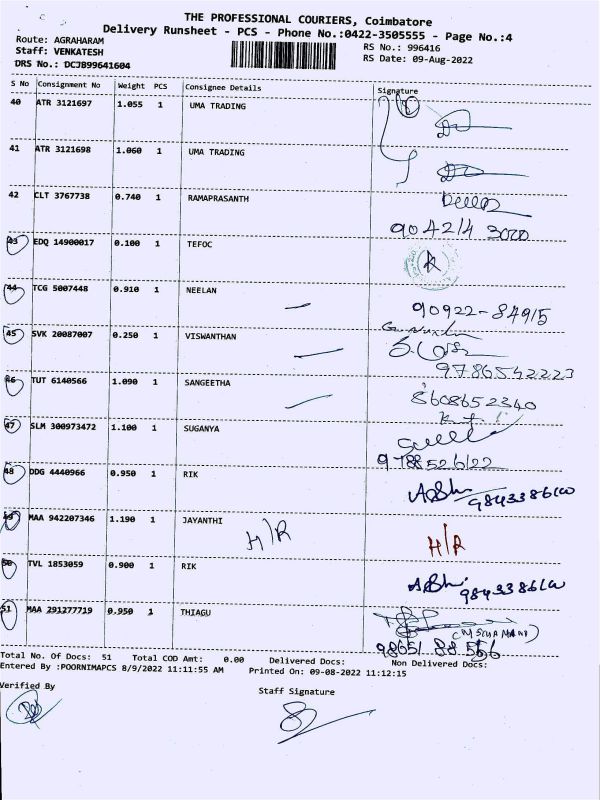 THE PROFESSIONAL COURIERS, Coimbatore
Delivery Runsheet - PCS - Phone No.:0422-3505555 - Page No.:4
Route: AGRAHARAM
RS No.: 996416
Staff: VENKATESH
RS Date: 09-Aug-2022
DRS No.: DCJB99641604
S No Consignment No Weight PCS Consignee Details Signature
40 ATR 3121697 1.055 1 UMA TRADING
41 ATR 3121698 1.060 1 UMA TRADING
42 CLT 3767738 0.740 1 RAMAPRASANTH
904214 3000
43 EDQ 14900017 0.100 1 TEFOC
44 TCG 5007448 0.910 1 NEELAN
90922-84915
45 SVK 20087007 0.250 1 VISWANTHAN
9786542223
46 TUT 6140566 1.090 1 SANGEETHA
8608652340
47 SLM 300973472 1.100 1 SUGANYA
9788526122
48 DDG 4440966 0.950 1 RIK
49 MAA 942207346 1.190 1 JAYANTHI
H/R H/R
50 TVL 1853059 0.900 1 RIK
51 MAA 291277719 0.950 1 THIAGU
98651 88 556
Total No. Of Docs: 51 Total COD Amt: 0.00 Delivered Docs: Non Delivered Docs:
Entered By :POORNIMAPCS 8/9/2022 11:11:55 AM Printed On: 09-08-2022 11:12:15
Verified By
Staff Signature